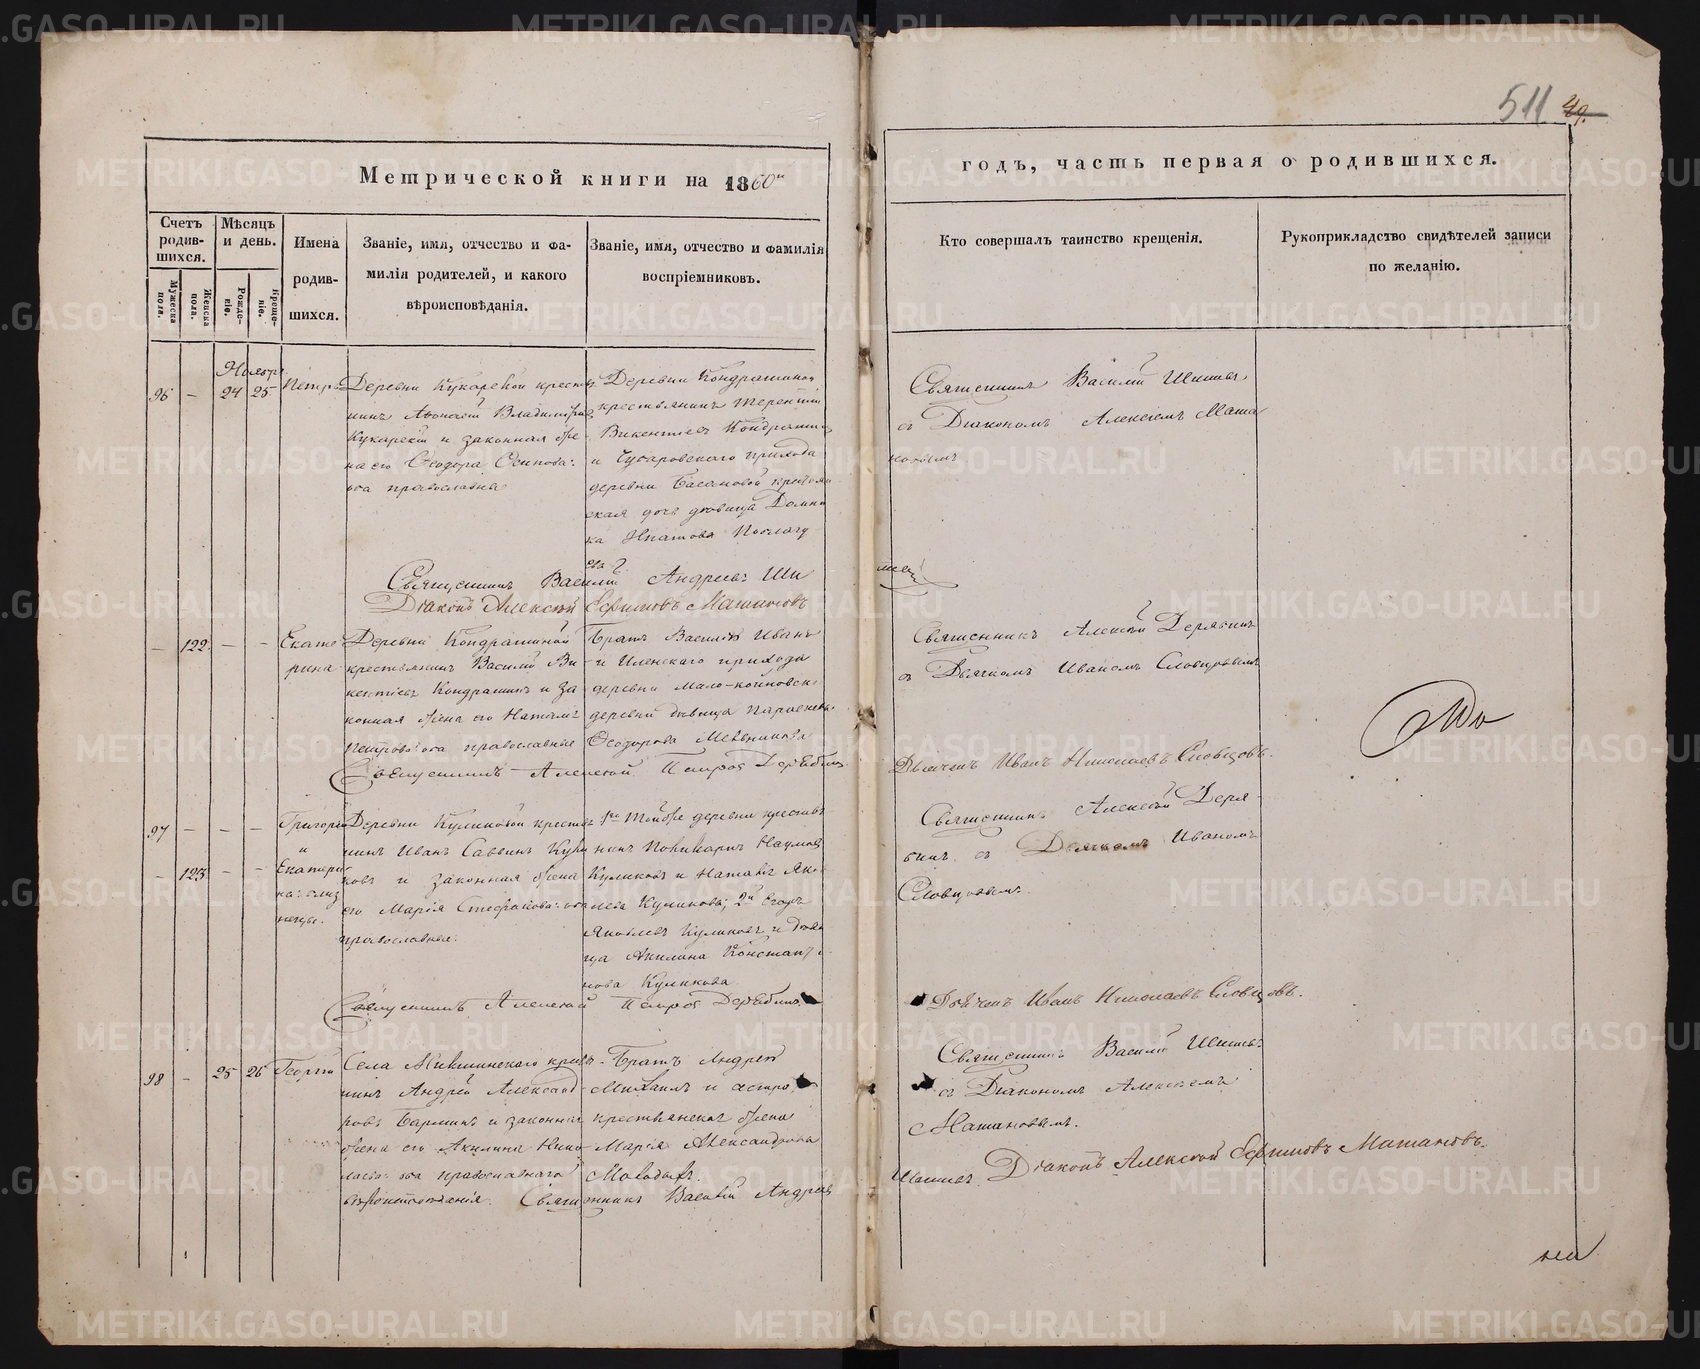 511 49.
Метрической книги на 1860й
годъ, часть первая о родившихся.
Счетъ родив-шихся.
Мужеска пола.
Женска пола.
Мѣсяцъ и день.
Рожде-нія.
Креще-нія.
Имена
родив-
шихся.
Званіе, имя, отчество и фа-
милія родителей, и какого
вѣроисповѣданія.
Званіе, имя, отчество и фамилія
воспріемниковъ.
Кто совершалъ таинство крещенія.
Рукоприкладство свидѣтелей записи
по желанію.
Ноября
96 - 24 25 Петръ
Деревни Кукарской кресть
нинъ Владимiровъ
Кукарскiй и законная же-
на его Ѳеодора Осипова:
оба православные
Деревни Кондрашиной
крестьянинъ Терентiй
Викентiевъ Кондрашинъ
и прихода
деревни крестьян
ская дочь дѣвица Домни
ка Ипатова
ева
Священникъ Василiй Шишевъ
съ Дiакономъ Алексiемъ Маша
новымъ
Священникъ Василiй Андреевъ Ши
шевъ
Дiаконъ Алексѣй Ефимовъ Машановъ
- 122 - - Екате
рина
Деревни Кондрашиной
крестьянинъ Василiй Ви
кентiевъ Кондрашинъ и за
конная жена его Наталья
Петрова: оба православные
Братъ Василiя Иванъ
и Иленскаго прихода
деревни
деревни дѣвица Параскева
Ѳеодорова Мельникова
Священникъ Алексѣй Дерябинъ
съ Дьячкомъ Иваномъ Словцовымъ
Священникъ Алексѣй Петровъ Дерябинъ
Дьячекъ Иванъ Николаевъ Словцовъ.
97 - - - Григорiй
и
- 123 - - Екатери
на: близ
нецы.
Деревни Куликовой кресть
нинъ Иванъ Саввинъ Кули
ковъ и законная жена
его Марiя Стефанова: оба
православные.
1го Той же деревни крестья
нинъ Поликарпъ Наумовъ
Куликовъ и Наталья Яков
лева Куликова; 2й Егоръ
Яковлевъ Куликовъ и дѣви
ца Акилина Константи
нова Куликова
Священникъ Алексѣй Деря-
бинъ съ Дьячкомъ Иваномъ
Словцовымъ.
Священникъ Алексѣй Петровъ Дерябинъ
Дьячекъ Иванъ Николаевъ Словцовъ.
98 - 25 26 Георгiй
Села крестья
нинъ Андрей Александ
ровъ Барминъ и законная
жена его Акилина Нико
лаева: оба православнаго
вѣроисповѣданiя.
Братъ Андрея
Михаилъ и
крестьянская жена
Марiя Александрова
Священникъ Василiй Шишевъ
съ Дiакономъ Алексiемъ
Машановымъ.
Священникъ Василiй Андреевъ
Шишевъ. Дiаконъ Алексѣй Ефимовъ Машановъ.